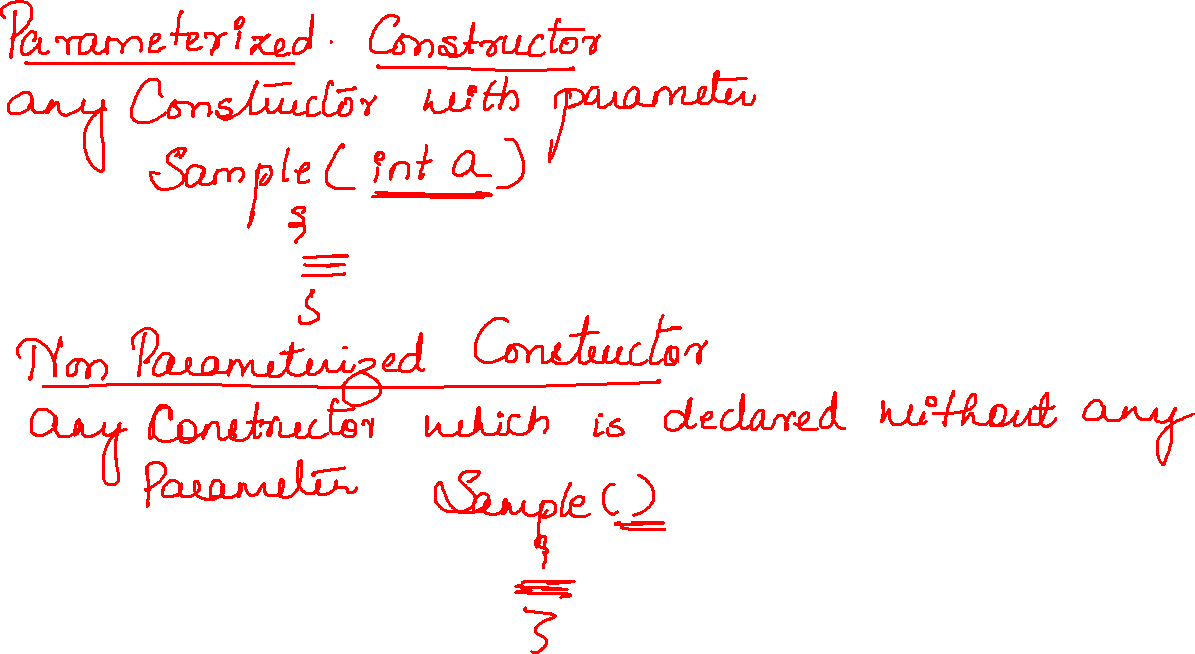 Parameterized. Constructor
any Constructor with parameter
Sample ( int a )
{
}
Non Parameterized Constructor
any Constructor which is declared without any
Parameter Sample ( )
{
}